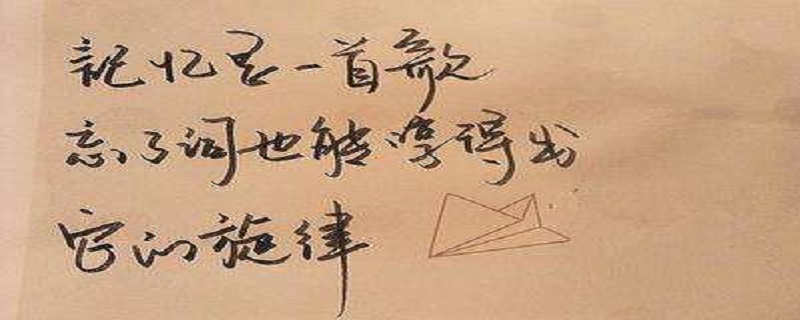 記忆是一首歌
忘了词也能哼得出
它的旋律